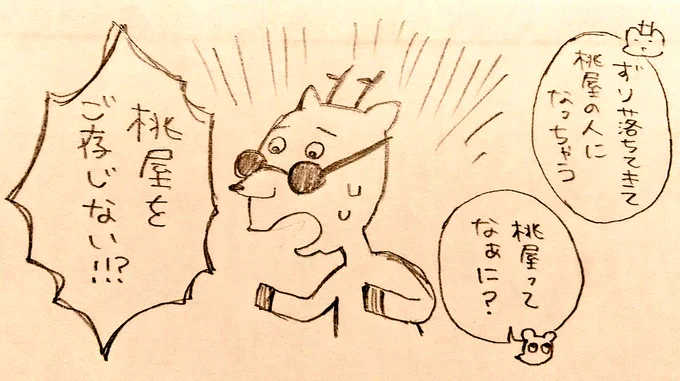 ずり落ちてきて
桃屋の人に
なっちゃう
桃屋って
なぁに？
桃屋を
ご存じない!!?